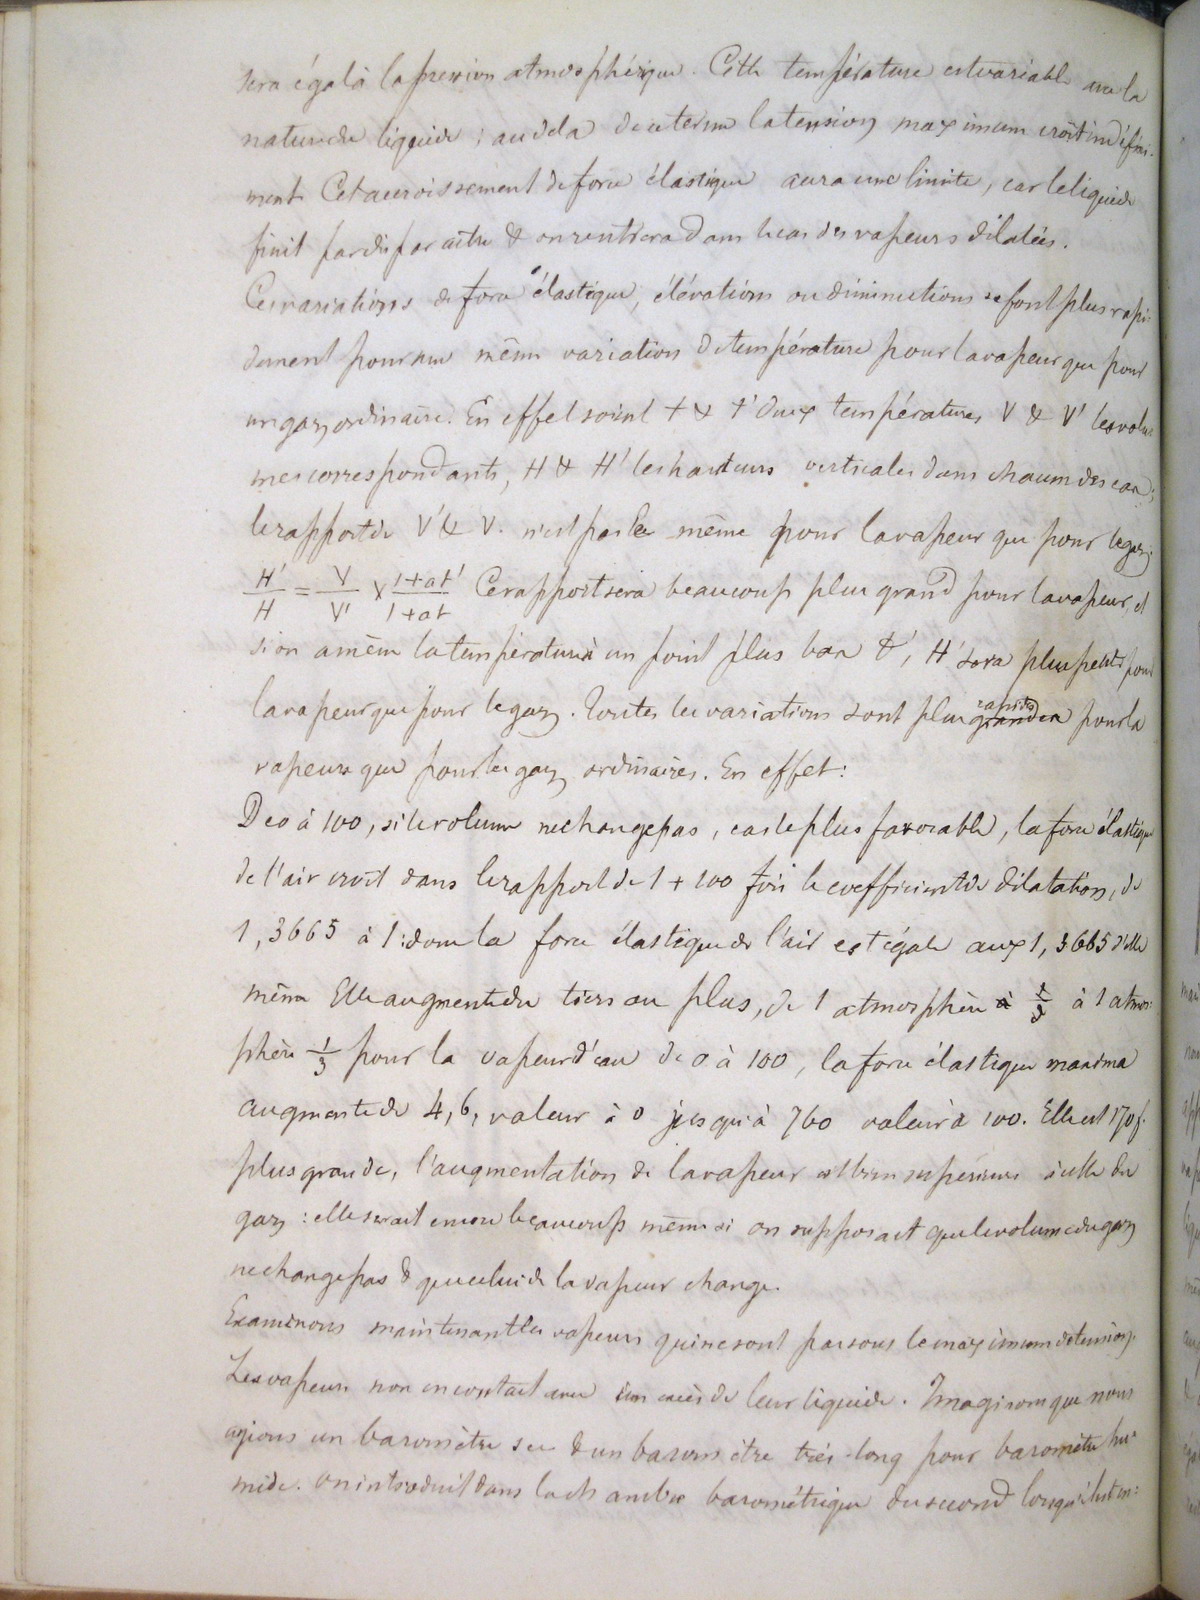 sera égal à la pression atmosphérique. Cette température est variable avec la
nature du liquide ; au dela de ce terme la tension maximum croît indéfini-
ment. Cet accroissement de force élastique aura une limite, car le liquide
finit par disparaître & on rentrera dans le cas des vapeurs dilatées.
Ces variations de force élastique, élévations ou diminutions se font plus rapi-
dement pour une même variation de température pour la vapeur que pour
un gaz ordinaire. En effet soient t & t' deux températures V & V' les volu-
mes correspondants, H & H' les hauteurs verticales dans chacun des cas ;
le rapport de V' & V. n'est pas le même pour la vapeur que pour le gaz.
H'/H = V/V' × 1+at'/1+at Ce rapport sera beaucoup plus grand pour la vapeur, et
si on amène la température à un point plus bas t', H' sera plus petit pour
la vapeur que pour le gaz. Toutes les variations sont plus grandes rapides pour la
vapeur que pour les gaz ordinaires. En effet :
De 0 à 100, si le volume ne change pas, cas le plus favorable, la force élastique
de l'air croît dans le rapport de 1 + 100 fois le coefficient de dilatation, de
1,3665 à 1 : donc la force élastique de l'air est égale aux 1,3665 d'elle
même Elle augmente du tiers au plus, de 1 atmosphère à 1/3 à 1 atmos-
phère 1/3 pour la vapeur d'eau de 0 à 100, la force élastique maxima
augmente de 4,6, valeur à 0 jusqu'à 760 valeur à 100. Elle est 170 f.
plus grande, l'augmentation de la vapeur est bien supérieure à celle du
gaz : elle serait encore beaucoup même si on supposait que le volume du gaz
ne change pas & que celui de la vapeur change.
Examinons maintenant les vapeurs qui ne sont pas sous le maximum de tension.
Les vapeurs non en contact avec un excès de leur liquide. Imaginons que nous
ayions un baromètre sec & un baromètre très-long pour baromètre hu-
mide. on introduit dans la chambre barométrique du second lorsqu'il est en-